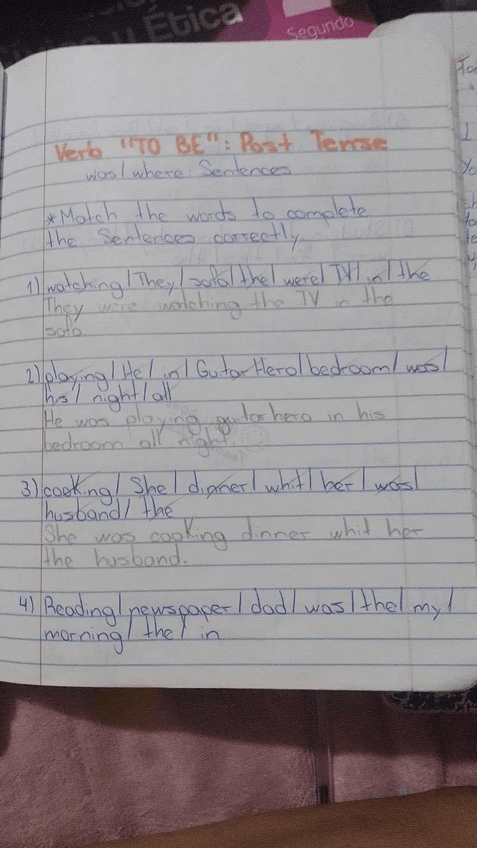 Cívica y Ética
Segundo
Verb "TO BE": Past Tense
was/where: Sentences
*Match the words to complete
the Sentences correctly
1) watching/They/sofa/the/were/TV/in/the
They were watching the TV in the
sofa
2) playing/He/in/Guitar Hero/bedroom/was/
his/night/all
He was playing guitar hero in his
bedroom all night.
3) cooking/She/dinner/whit/her/was/
husband/the
She was cooking dinner whit her
the husband.
4) Reading/newspaper/dad/was/the/my/
morning/the/in